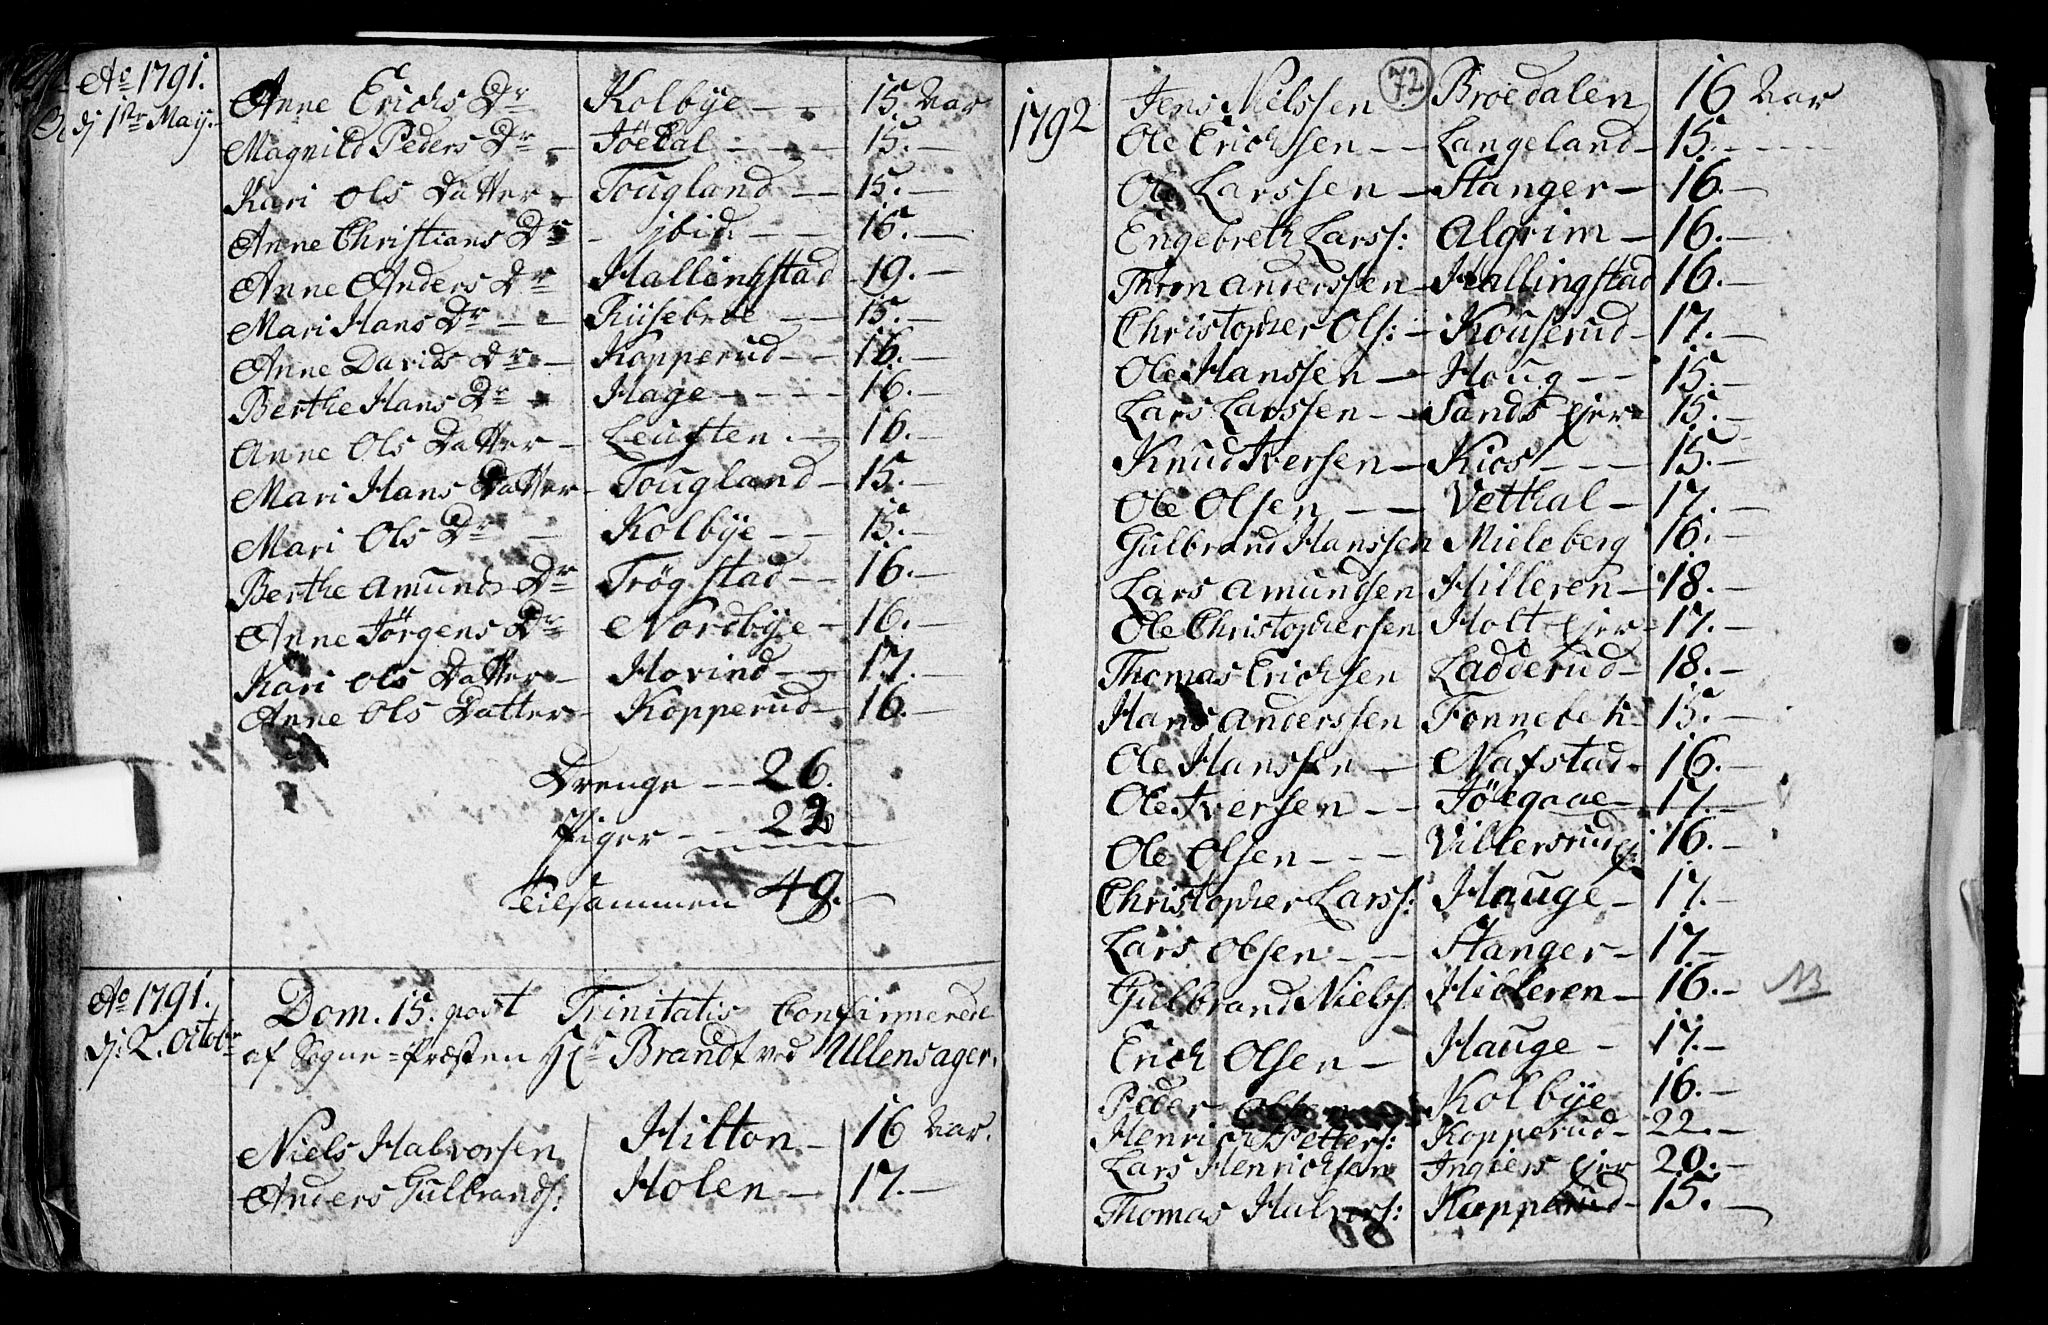 Ao 1791.
dj 1ste Maij.
Anne Erichs Dr Kolbÿe - - 15 Aar
Magnild Peders Dr - Jöedal - - - 15. -
Kari Ols Datter - Tougland - - 15. -
Anne Christians Dr - jbid - - 16. -
Anne Anders Dr Hallingstad - 19. -
Mari Hans Dr - - Riisebroe - - 15. -
Anne Davids Dr - Kopperud - - 16. -
Berthe Hans Dr - Hage - - - - 16. -
Anne Ols Datter - Leuften. - 16. -
Mari Hans Datter - Tougland - 15. -
Mari Ols Dr - Kolbÿe - - 15. -
Berthe Amunds Dr Trögstad - - 16. -
Anne Jörgens Dr Nordbÿe - 16. -
Kari Ols Datter - Hovind - - 17. -
Anne Ols Datter - Kopperud - 16. -
Drenge - - 26.
Piger - - 23
Tilsammen 49. -
Ao 1791.
dj: 2. Octobr
Dom. 15. post Trinitatis Confirmerede
af Sogne-Præsten Hr Brandt ved Ullensager.
Niels Halvorsen Hilton - 16 Aar.
Anders Gulbrands: Holen - 17. -
72
1792
Jens Nielssen Broedalen 16 Aar
Ole Erichssen - - Langeland - 15. - - - -
Ole Larssen - Stanger - 16. -
Engebreth Larss: Algrim - 16. -
Thron Anderssen - Hallingstad 16. -
Christopher Ols: - Kouserud - 17. -
Ole Hanssen - Houg - - 15. -
Lars Larssen - - Sands Ejer 15. -
Knud Iversen - Kios - - - 15. -
Ole Olsen - - Vethal - 17. -
Gulbrand Hanssen Mieleberg 16. -
Lars Amundsen Hilleren - 18. -
Ole Christophersen Holt Ejer - 17. -
Thomas Erichsen Ladderud - 18. -
Hans Anderssen Fonnebek - 15. -
Ole Hanssen - Nafstad - 16. -
Ole Iversen - - Jölegaae - 17. -
Ole Olsen - - - Villersrud Ej: 16. -
Christopher Larss: Hauge - 17. -
Lars Olsen - - Stanger - 17. -
Gulbrand Niels: Hilleren - 16. - NB
Erich Olsen - Hauge - 17. -
Peder Kolbÿe 16. -
Henrich Petters: Kopperud - 22. -
Lars Henrichsen Ingiers Ejer 20. -
Thomas Halvors: Kopperud - 15. -